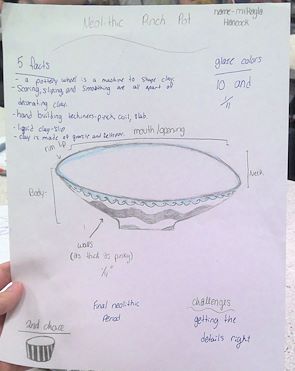 Neolithic Pinch Pot
name- miKayla
Hancock
5 facts
- a pottery wheel is a machine to shape clay.
- Scoring, sliping, and smoothing are all apart of
decorating clay.
- hand building techiners- pinch, coil, slab.
- liquid clay- slip
- clay is made of granite and
glaze colors
10 and
mouth/opening
rim lip
Neck
Body
walls
(as thick as pinky)
1/4"
final neolithic
Period
challenges
getting the
details right
2nd choice